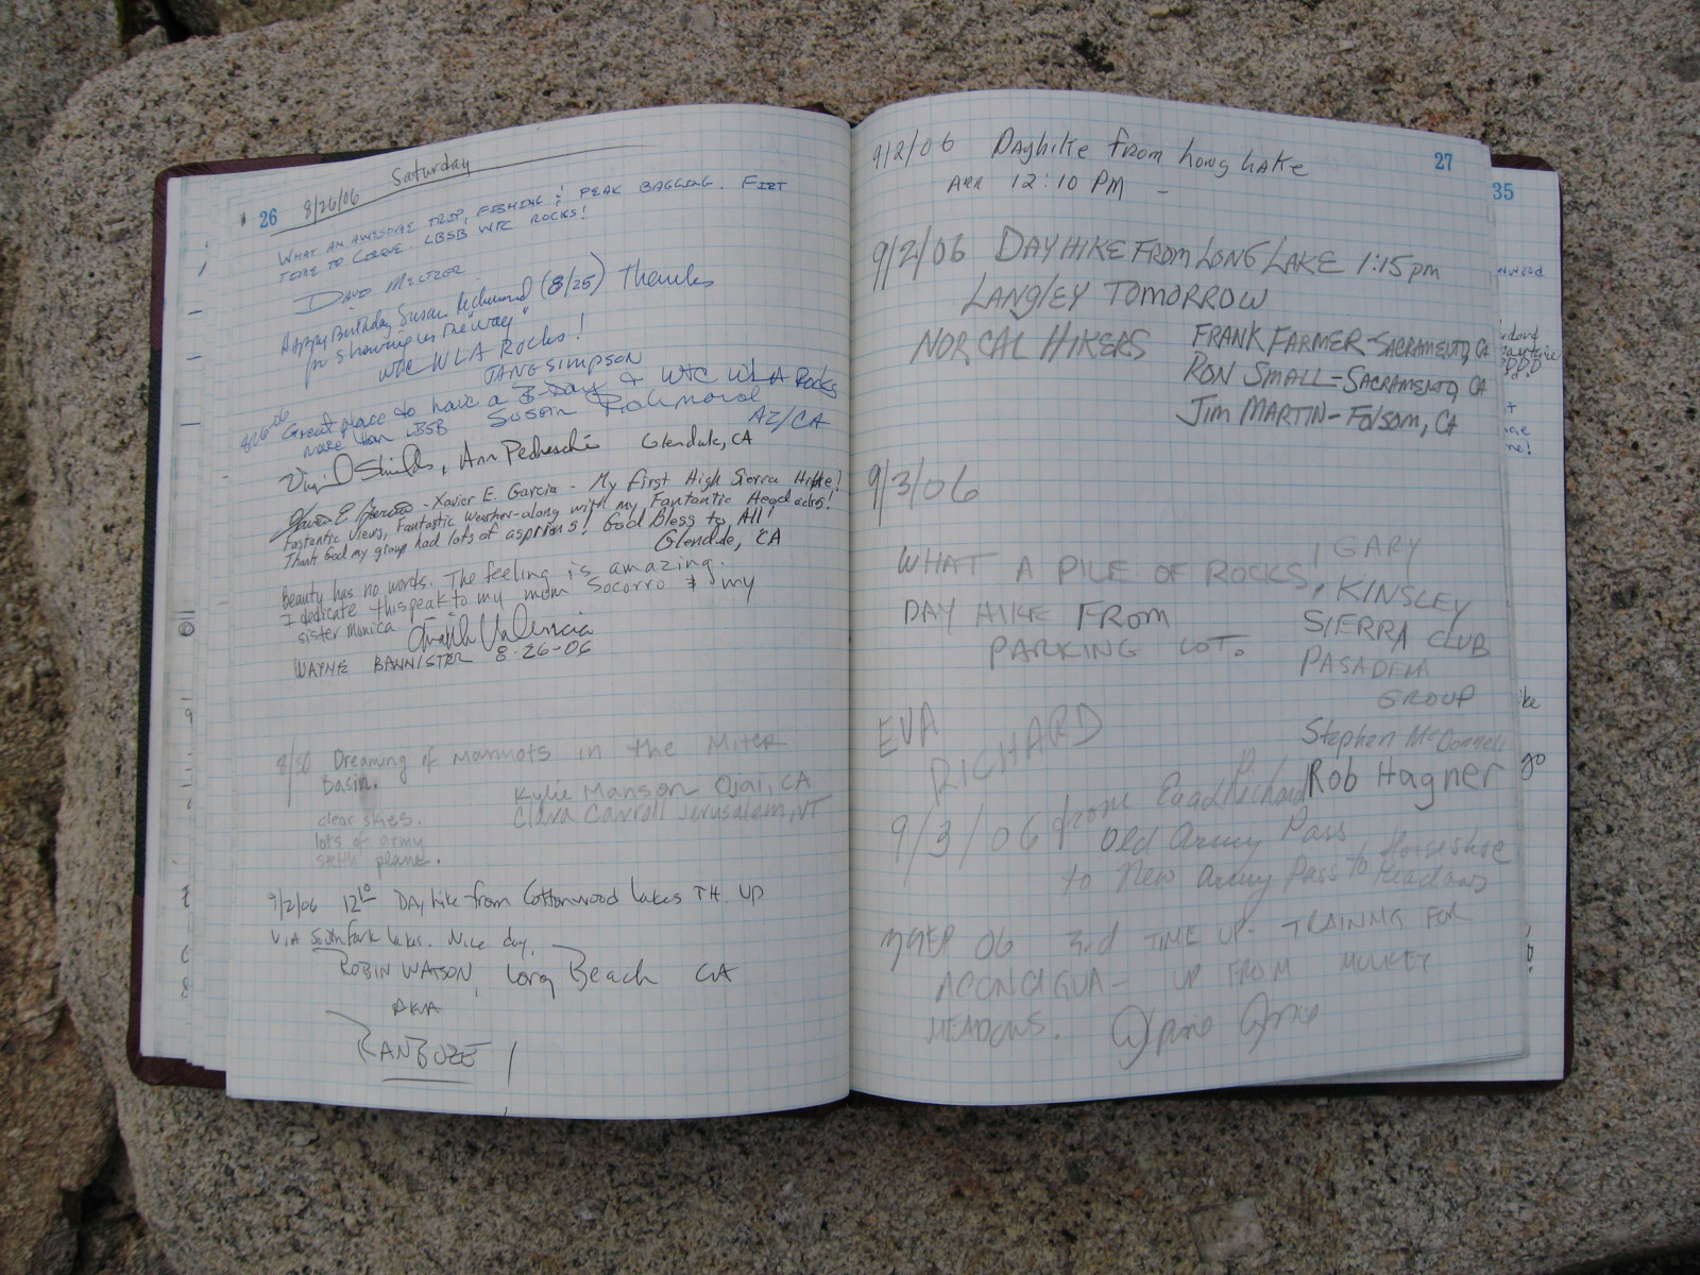 26 8/26/06 Saturday
WHAT AN AWESOME TRIP, FISHING & PEAK BAGGING. FIRT
TIME TO LBSB WTC ROCKS!
DAVID MELTZER
Happy Birthday Susan Richmond (8/25) Thanks
for showing us the "way"
WTC WLA Rocks!
JANE SIMPSON
8/26/06 Great place to have a B-Day & WTC WLA Rocks
more than LBSB Susan Richmond
AZ/CA
Virgil Shields, Ann Pedreschi Glendale, CA
Xavier E. Garcia - My first High Sierra Hike!
Fantastic views, Fantastic Weather-along with my Fantantic Head aches!
Thank God my group had lots of asprins! God Bless to All!
Glendale, CA
Beauty has no words. The feeling is amazing.
I dedicate this peak to my mom Socorro & my
sister Monica Valencia
WAYNE BANNISTER 8-26-06
8/30 Dreaming of marmots in the Miter
Basin.
Kylie Manson Ojai, CA
clear skies. Clara Carroll Jerusalem, VT
lots of army
stealth planes.
9/2/06 12:10 Day hike from Cottonwood Lakes TH. UP
VIA South Fork Lakes. Nice day.
ROBIN WATSON, Long Beach CA
AKA
RANBOZE
27
9/2/06 Dayhike from Long Lake
Arr 12:10 PM -
9/2/06 DAYHIKE FROM LONG LAKE 1:15pm
LANGLEY TOMORROW
NOR CAL HIKERS FRANK FARMER-SACRAMENTO, CA
RON SMALL-SACRAMENTO, CA
JIM MARTIN-FOLSOM, CA
9/3/06
WHAT A PILE OF ROCKS!
DAY HIKE FROM
PARKING LOT.
GARY
KINSLEY
SIERRA CLUB
PASADENA
GROUP
Stephen McDonnell
Rob Hagner
EVA
RICHARD
9/3/06 from
Old Army Pass
to New Army Pass to Horseshoe
Meadows
3 SEP 06 3rd TIME UP - TRAINING FOR
ACONCAGUA - UP FROM MULKEY
MEADOWS.
35
go